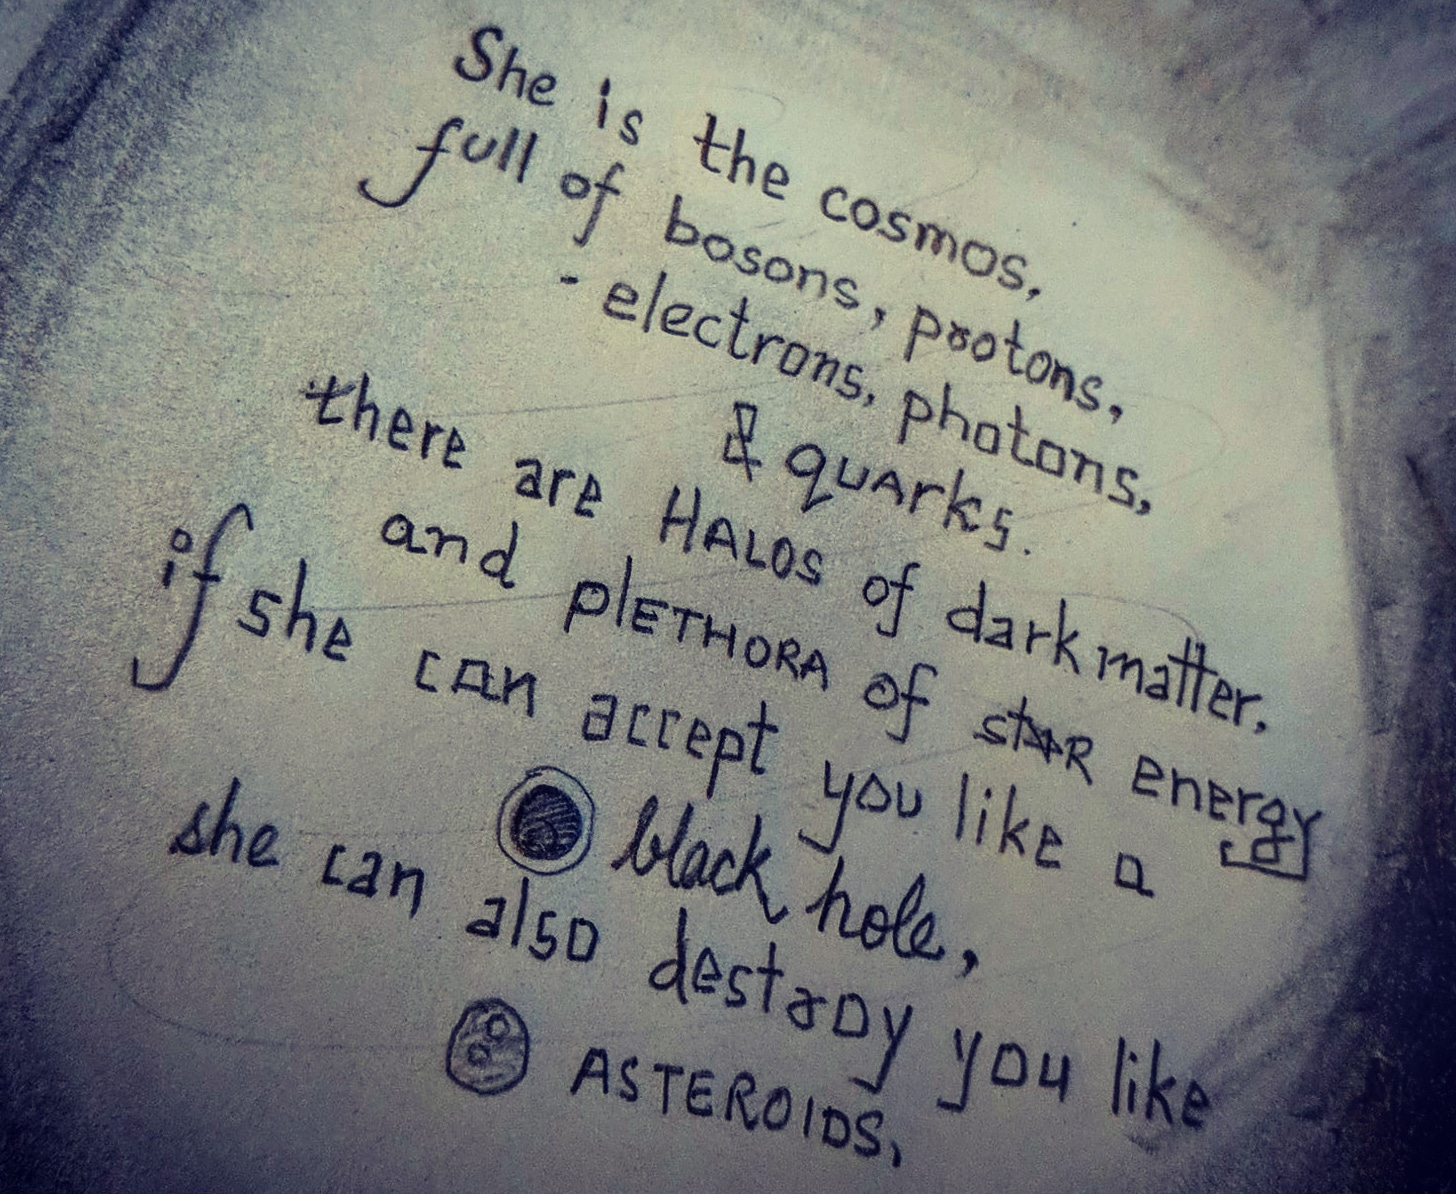 She is the cosmos,
full of bosons, protons,
- electrons, photons,
& quarks.
there are HALOS of dark matter,
and plETHORA of stAR energy
if she can accept you like a
black hole,
she can also destroy you like
ASTEROIDS,